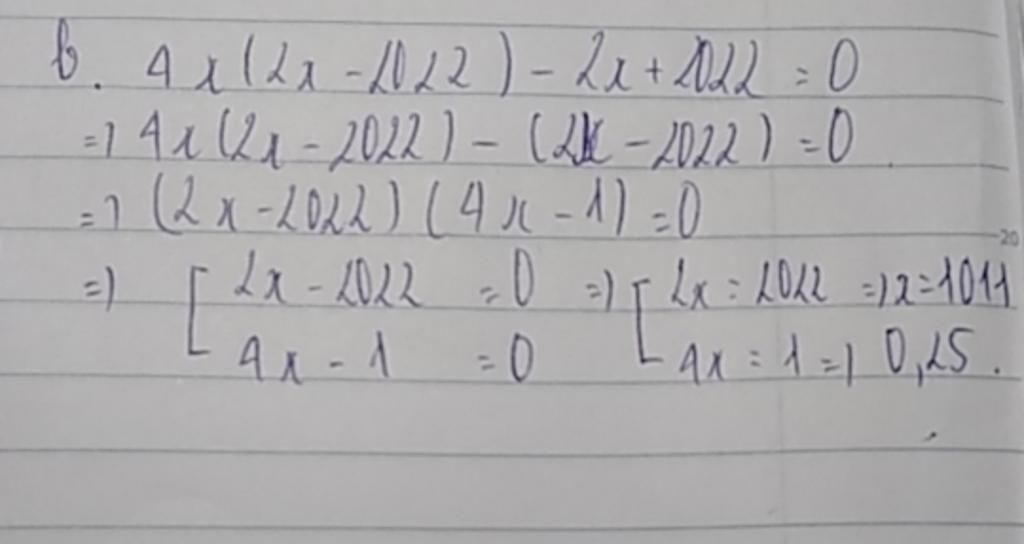 b. 4x(2x-2022) - 2x+2022 = 0
=> 4x(2x-2022) - (2x-2022) = 0
=> (2x-2022)(4x-1) = 0
20
=> [ 2x-2022 = 0 => [ 2x = 2022 => x=1011
4x-1 = 0 4x = 1 => 0,25.